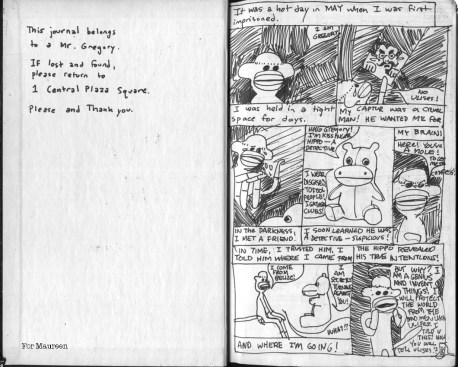 This journal belongs
to a Mr. Gregory.
If lost and found,
please return to
1 Central Plaza Square.
Please and Thank you.
For Maureen
It was a hot day in MAY when I was first
imprisoned.
I AM
GREGORY
I was held in a tight
space for days.
MY CAPTOR WAS A CRUEL
MAN! HE WANTED ME FOR
MY BRAIN!
IN THE DARKNESS,
I MET A FRIEND!
HELLO GREGORY!
HIPPO - A
DETECTIVE.
I WEAR
DISGUISES
TO TEST
PEOPLE!
CLUES!
I SOON LEARNED HE WAS
A DETECTIVE - SUSPICIOUS!
HERE! YOU'RE
A MOLE!
IN TIME, I TRUSTED HIM, I
TOLD HIM WHERE I CAME FROM
I COME
FROM
AND WHERE I'M GOING!
I AM
YOU!
WHAT!!
THE HIPPO REVEALED
HIS TRUE INTENTIONS!
BUT WHY? I
AM A GENIUS
AND INVENT
THINGS!
I WILL PROTECT
THE WORLD
FROM THE
I TOLD U
THIS! NOW
YOU WILL